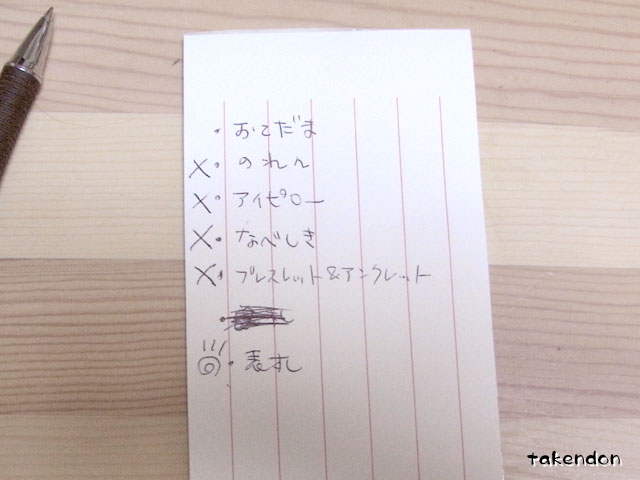 ・おてだま
×・のれん
×・アイピロー
×・なべしき
×・ブレスレット&アンクレット
◎・表札
takendon